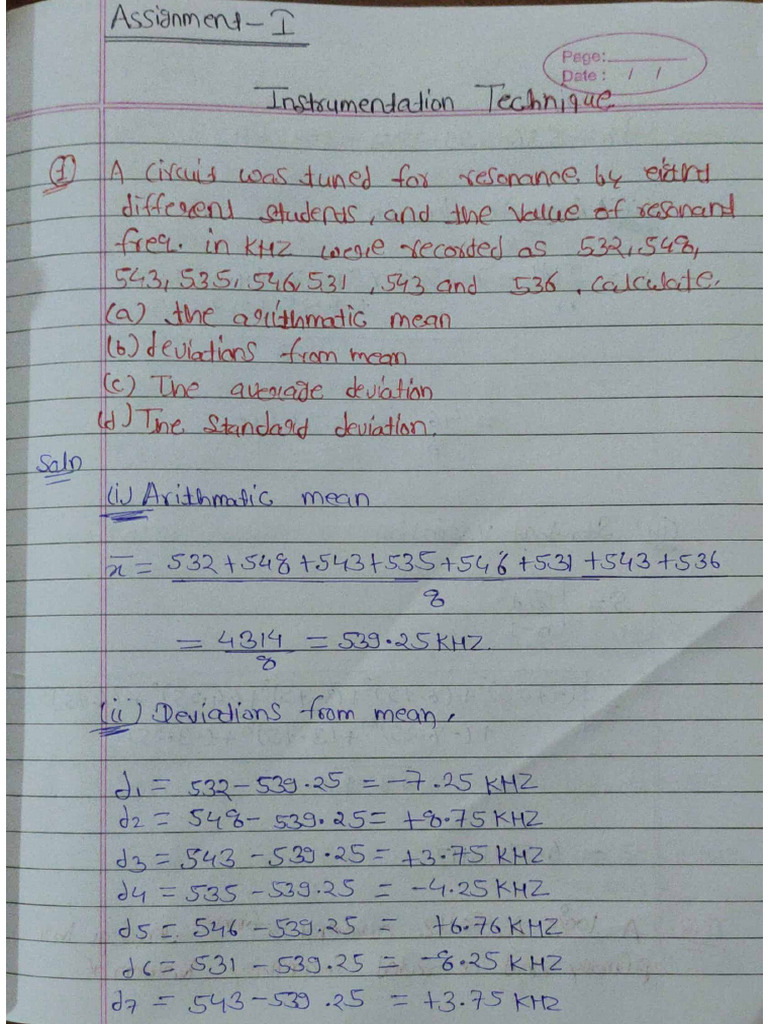 Assignment - I
Page:
Date : / /
Instrumentation Technique
(1) A circuit was tuned for resonance by eight
different students, and the value of resonant
freq. in KHZ were recorded as 532, 548,
543, 535, 546, 531, 543 and 536. calculate.
(a) the arithmatic mean
(b) deviations from mean
(c) The average deviation
(d) The standard deviation.
Soln
(i) Arithmatic mean
x̄ = 532+548+543+535+546+531+543+536
8
= 4314 = 539.25 KHZ.
8
(ii) Deviations from mean.
d1 = 532 - 539.25 = -7.25 KHZ
d2 = 548 - 539.25 = +8.75 KHZ
d3 = 543 - 539.25 = +3.75 KHZ
d4 = 535 - 539.25 = -4.25 KHZ
d5 = 546 - 539.25 = +6.76 KHZ
d6 = 531 - 539.25 = -8.25 KHZ
d7 = 543 - 539.25 = +3.75 KHZ